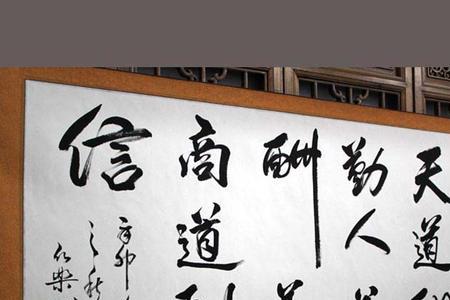 天道
勤人
酬
商道
信
辛卯
之秋